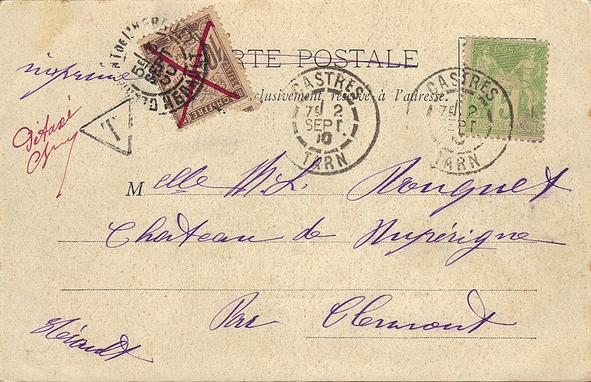 CARTE POSTALE
exclusivement réservé à l'adresse.
imprimé
CASTRES
7E 2
SEPT
TARN
CASTRES
7E 2
SEPT
TARN
POSTES
A PERCEVOIR
10
T
Détaxé
Melle M. L. Rouquet
Chateau de Nupérigne
Par Clermont
Hérault